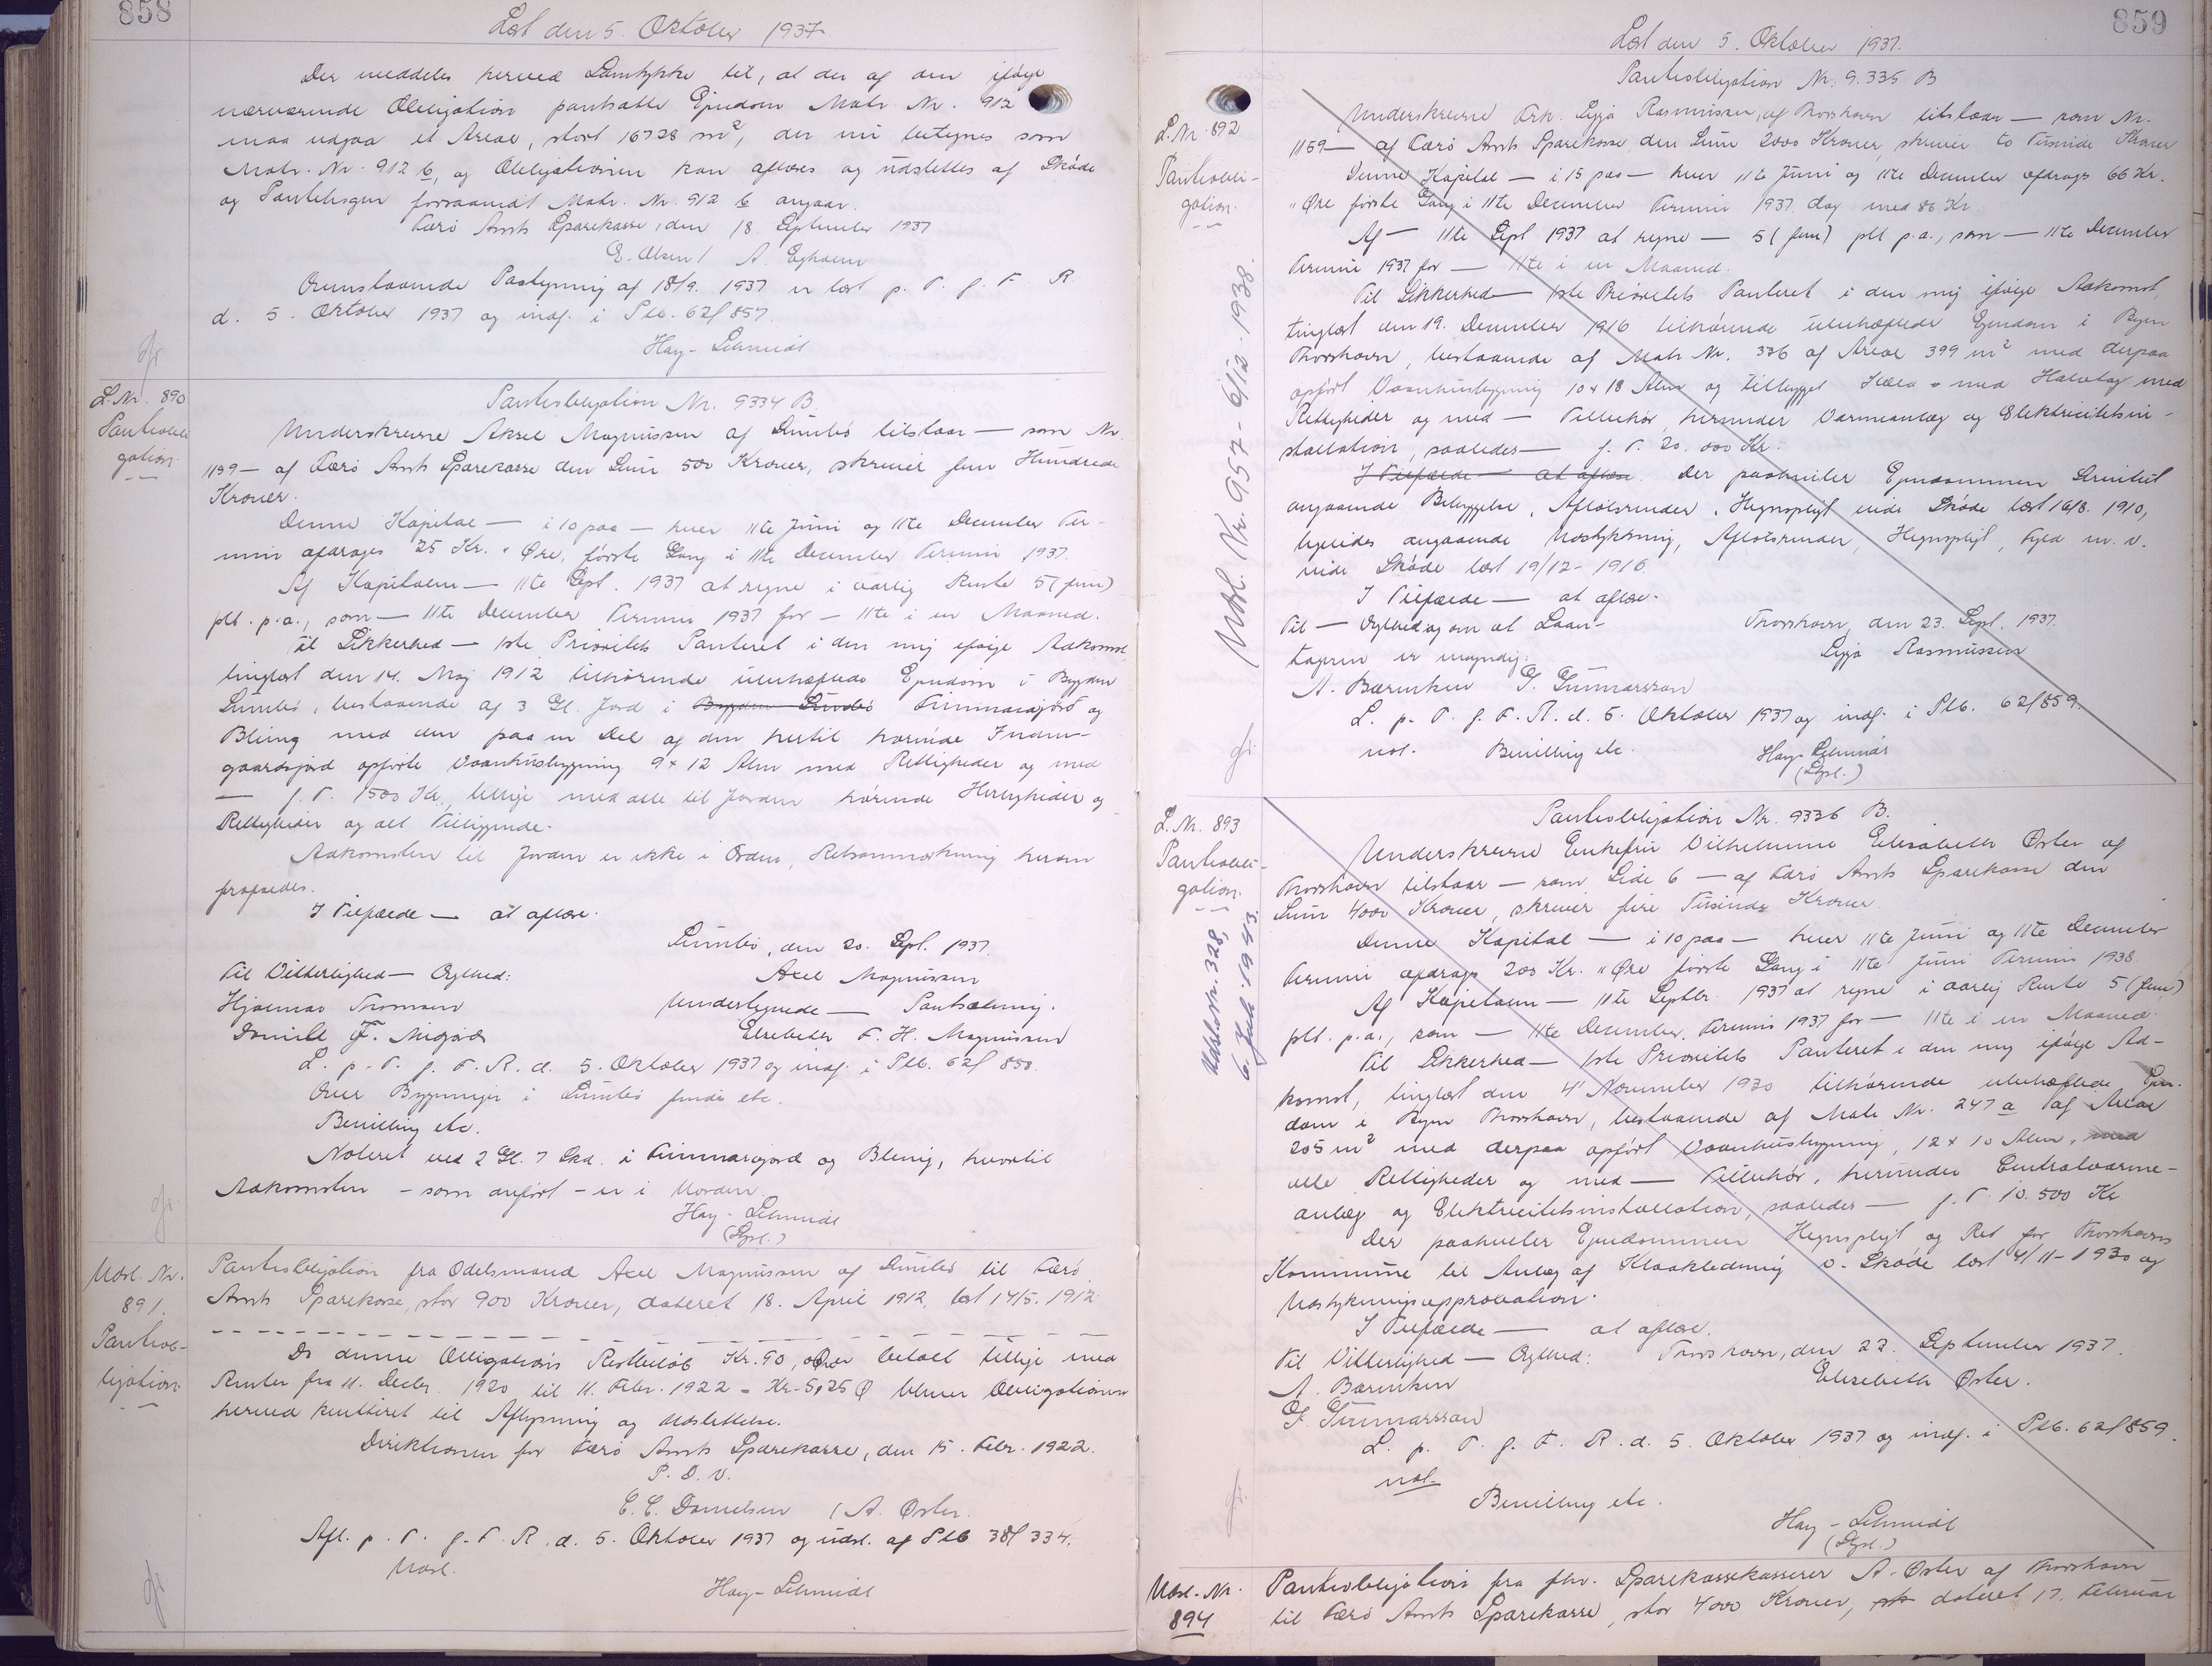 858
Læst den 5. Oktober 1937.
Der meddeles herved Samtykke til, at der af den ifølge
nærværende Obligation pantsatte Ejendom Matr. Nr. 912
maa udgaa et Areal, stort 16728 m², der nu betegnes som
Matr. Nr. 912 b, og Obligationen kan aflæses og udslettes af Skøde
og Pantebogen forsaavidt Matr. Nr. 912 b angaar.
Færø Amts Sparekasse, den 18. September 1937
E. Olsen / A. Egholm
Ovenstaaende Paategning af 18/9. 1937 er læst p. T. f. F. R
d. 5. Oktober 1937 og indf. i Ptb. 62/857.
Hay-Schmidt
L. Nr. 890
Pantobli
gation.
Pantobligation Nr. 9334 B.
Underskrevne Aksel Magnussen af Sumbø tilstaar — som Nr.
1139 — af Færø Amts Sparekasse den Sum 500 Kroner, skriver fem Hundrede
Kroner.
Denne Kapital — i 10 paa — hver 11te Juni og 11te December Ter-
min afdrages 25 Kr. " Øre, første Gang i 11te December Termin 1937.
Af Kapitalen — 11te Sept. 1937 at regne i aarlig Rente 5 (fem)
pCt. p.a., som — 11te December Termin 1937 for — 11te i en Maaned.
Til Sikkerhed — 1ste Prioritets Panteret i den mig ifølge Adkomst,
tinglæst den 14. Maj 1912 tilhørende ubehæftede Ejendom i Bygden
Sumbø, bestaaende af 3 Gl. Jord i Bygden Sumbø Finnarasjørð og
Bleing med den paa en Del af den hertil hørende Inden-
gaardsjord opførte Vaaningsbygning 9 x 12 Alen med Rettigheder og med
— f. T. 1500 Kr., tillige med alle til Jorden hørende Herligheder og
Rettigheder og alt Tilliggende.
Adkomsten til Jorden er ikke i Orden, Retsanmærkning herom
frafaldes.
I Tilfælde — at aflæse.
Sumbø, den 20. Sept. 1937.
Til Vitterlighed — Gyldhed:
Axel Magnussen
Hjalmar Thomsen
Underlignede — Panthæftning.
Daniel F. Nigard
Elsebeth F. H. Magnussen
L. p. T. f. F. R. d. 5. Oktober 1937 og indf. i Ptb. 62/858.
Over Bygninger i Sumbø findes etc.
Bevilling etc.
Noteret ved 2 Gl. 7 Skd. i Finnarasjord og Bleing, hvortil
Adkomsten — som anført — er i Uorden
Hay-Schmidt
(Sgsl.)
Udsl. Nr.
891.
Pantob-
ligation
Pantobligation fra Odelsmand Axel Magnussen af Sumbø til Færø
Amts Sparekasse, stor 900 Kroner, dateret 18. April 1912, læst 14/5. 1912.
Da denne Obligations Restbeløb Kr. 90, 00 Øre er betalt tillige med
Renter fra 11. Decbr. 1920 til 11. Febr. 1922 = Kr. 5,25 Ø bliver Obligationen
herved kvitteret til Aflysning og Udslettelse.
Direktionen for Færø Amts Sparekasse, den 15. Febr. 1922.
P. D. V.
C. C. Danielsen / A. Øster.
Afl. p. T. f. F. R. d. 5. Oktober 1937 og udsl. af Ptb 38/334.
Udsl.
Hay-Schmidt
859
Læst den 5. Oktober 1937.
L. Nr. 892
Pantobli-
gation.
Udsl. Nr. 957 - 6/12. 1938.
Pantobligation Nr. 9.335 B
Underskrevne Frk. Sigga Rasmussen, af Thorshavn tilstaar — som Nr.
1159 — af Færø Amts Sparekasse den Sum 2000 Kroner, skriver to Tusinde Kroner
Denne Kapital — i 15 paa — hver 11te Juni og 11te December afdrages 66 Kr.
" Øre første Gang i 11te December Termin 1937. dog med 86 Kr.
Af — 11te Sept 1937 at regne — 5 (fem) pCt p.a., som — 11te December
Termin 1937 for — 11te i en Maaned.
Til Sikkerhed — 1ste Prioritets Panteret i den mig ifølge Adkomst,
tinglæst den 19. December 1916 tilhørende ubehæftede Ejendom i Byen
Thorshavn, bestaaende af Matr. Nr. 336 af Areal 399 m² med derpaa
opført Vaaningsbygning 10 x 18 Alen og tilbygget med Halvtag med
Rettigheder og med — Tilbehør, herunder Varmeanlæg og Elektricitetsin-
stallation, saaledes — f. T. 20.000 Kr.
I Tilfælde — at aflæse. Der paahviler Ejendommen Servitut
angaaende Bebyggelse, Afløbsrender, Hegnspligt inde Skøde læst 16/8. 1910,
ligeledes angaaende Udstykning, Afløbsrender, Hegnspligt, Fyld m. v.
inde Skøde læst 19/12 - 1916.
I Tilfælde — at aflæse.
Til — Gyldhed og om at Laan-
tageren er myndig:
Thorshavn, den 23. Sept. 1937.
Sigga Rasmussen
A. Bærentsen G. Gunnarsson
L. p. T. f. F. R. d. 5. Oktober 1937 og indf. i Ptb. 62/859.
not. Bevilling etc.
Hay-Schmidt
(Sgsl.)
L. Nr. 893
Pantobli-
gation.
Udsl. Nr. 328,
6. Juli 1943.
Pantobligation Nr. 9336 B.
Underskrevne Enkefru Vilhelmine Elisabeth Øster af
Thorshavn tilstaar — som Side 6 — af Færø Amts Sparekasse den
Sum 4000 Kroner, skriver fire Tusinde Kroner.
Denne Kapital — i 10 paa — hver 11te Juni og 11te December
Termin afdrages 200 Kr. " Øre første Gang i 11te Juni Termin 1938.
Af Kapitalen — 11te Septbr. 1937 at regne i aarlig Rente 5 (fem)
pCt. p.a., som — 11te December Termin 1937 for — 11te i en Maaned.
Til Sikkerhed — 1ste Prioritets Panteret i den mig ifølge Ad-
komst, tinglæst den 4' November 1930 tilhørende ubehæftede Ejen-
dom i Byen Thorshavn, bestaaende af Matr Nr. 247 a af Areal
205 m² med derpaa opført Vaaningsbygning, 12 x 10 Alen, med
alle Rettigheder og med — Tilbehør, herunder Centralvarme-
anlæg og Elektricitetsinstallation, saaledes — f. T. 10.500 Kr
Der paahviler Ejendommen Hegnspligt og Ret for Thorshavns
Kommune til Anlæg af Kloakledning v. Skøde læst 4/11 - 1930 og
Udstykningsapprobation.
I Tilfælde — at aflæse.
Til Vitterlighed — Gyldhed: Thorshavn, den 22. September 1937.
A. Bærentsen
Elisabeth Øster.
G. Gunnarsson
L. p. T. f. F. R. d. 5. Oktober 1937 og indf. i Ptb. 62/859.
not.
Bevilling etc.
Hay-Schmidt
(Sgsl.)
Udsl. Nr.
894
Pantobligation fra fhv. Sparekassekasserer A. Øster af Thorshavn
til Færø Amts Sparekasse, stor 4000 Kroner, dateret 17. Februar